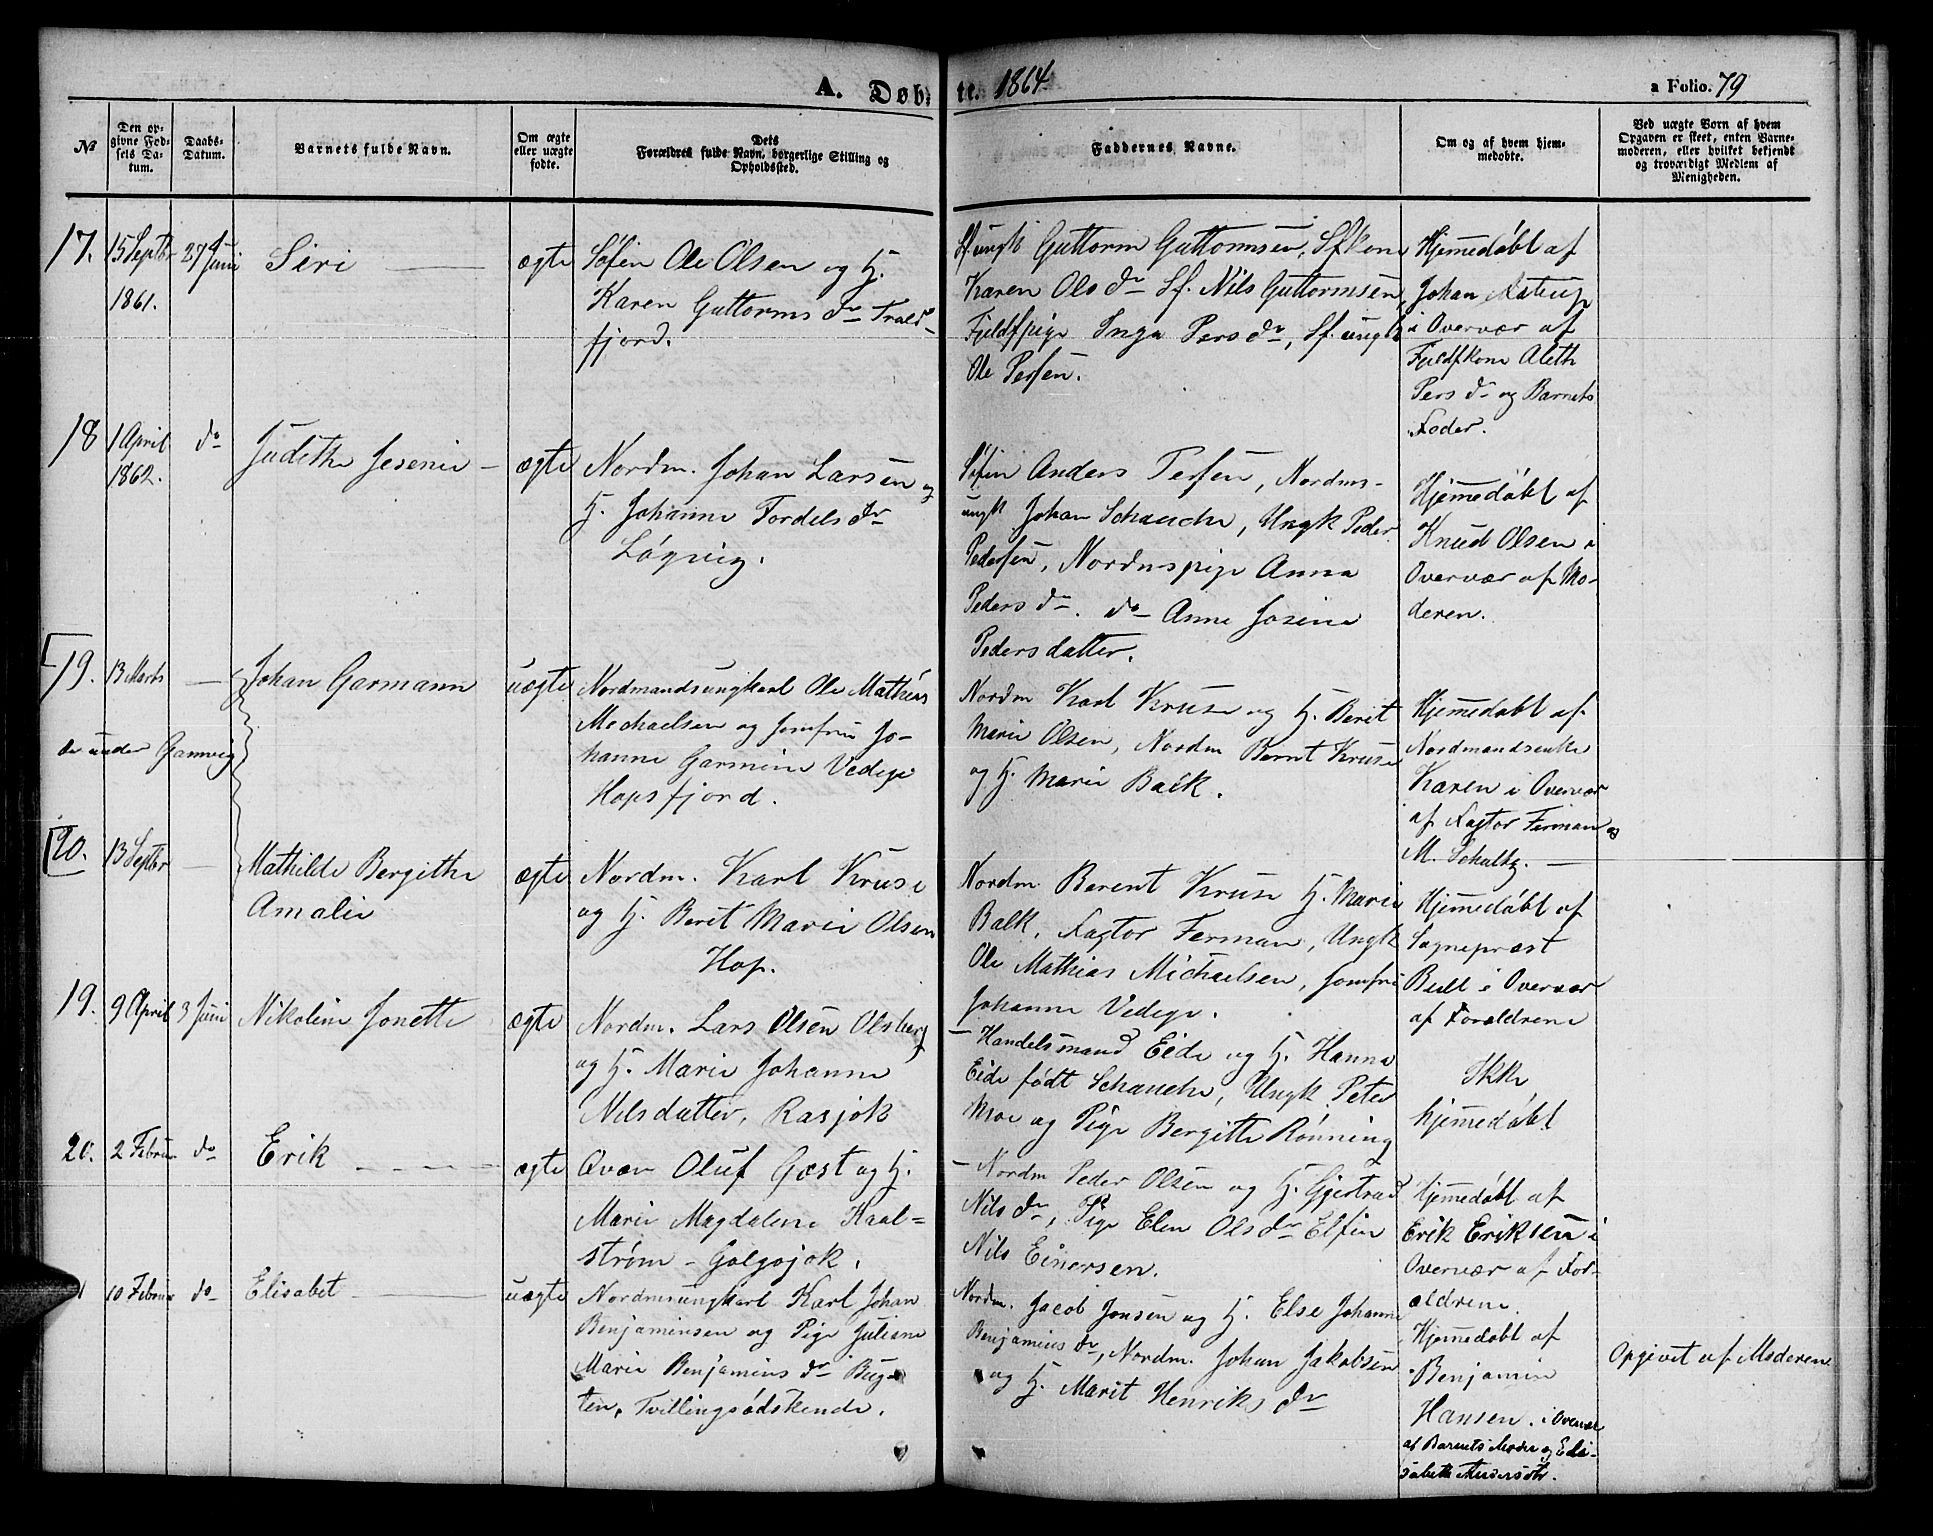 A. Døb-
te. 1864.
a Folio. 79
№
Den op-
givne Fød-
sels Da-
tum.
Daabs-
Datum.
Barnets fulde Navn.
Om ægte
eller uægte
fødte.
Dets
Forældres fulde Navn, borgerlige Stilling og
Opholdssted.
Faddernes Navne.
Om og af hvem hjem-
medøbte.
Ved uægte Born af hvem
Opgaven er skeet, enten Barne-
moderen, eller hvilket bekjendt
og troværdigt Medlem af
Menigheden.
17.
15 Septbr
1861.
27 Juni
Siri
ægte
Søfin Ole Olsen og H.
Karen Guttorms dr
fjord.
Sf. ungk Guttorm Guttormsen, Sfkone
Karen Ols dr Sf. Nils Guttormsen,
Fjeldfpige Inga Pers dr, Sf. ungk
Ole Persen.
Hjemmedøbt af
Johan Aatrup
i Overvær af
Fjeldfkone Aleth
Pers dr og Barnets
Fader.
18
1 April
1862.
do
Judithe Jesenie
ægte
Nordm. Johan Larsen og
H. Johanne Fordels dr
Løgvig.
Søfin Anders Persen, Nordms-
ungk Johan Schanche, Ungk Peder
Pedersen, Nordmspige Anna
Peders dr. do Anne Josine
Pedersdatter.
Hjemmedøbt af
Knud Olsen i
Overvær af Mo-
deren.
19.
13 Marts
Johan Garmann
uægte
Nordmandsungkarl Ole Mathias
Mechaelsen og Jomfru Jo-
hanne Garmine Vedege
Hopsfjord.
Nordm Karl Kruse og H. Berit
Marie Olsen, Nordm Bernt Kruse
og H. Marie Balk.
Hjemmedøbt af
Nordmandsenke
Karen i Overvær
af Fagtor Ferman og
M. Schultz.
se under Gamvig
20.
13 Septbr
Mathilde Bergithe
Amalie
ægte
Nordm. Karl Kruse
og H. Berit Marie Olsen
Hop.
Nordm Berent Kruse H. Marie
Balk, Fagtor Ferman, Ungk
Ole Mathias Michaelsen, Jomfru
Johanne Vedege.
Hjemmedøbt af
Sognepræst
Bull i Overvær
af Forældrene
19.
9 April
3 Juni
Nikoline Jonette
ægte
Nordm. Lars Olsen Olsborg
og H. Marie Johanne
Nilsdatter, Rasjok
Handelsmand Eide og H. Hanna
Eide født Schanche, Ungk Peter
Moe og Pige Bergitte Rønning
Ikke
hjemmedøbt
20.
2 Februar
do
Erik
ægte
Qvæn Oluf Gæst og H.
Marie Magdalene Kaal=
strøm - Golgojok.
Nordm Peder Olsen og H. Gjertrud
Nils dr, Pige Elen Ols dr Elfin
Nils Einersen.
Hjemmedøbt af
Erik Eriksen i
Overvær af For-
ældrene.
10 Februar
do
Elisabet
uægte
Nordmsungkarl Karl Johan
Benjaminsen og Pige Juliane
Marie Benjamins dr Bug-
ten, Tvillingsødskende.
Nordm. Jacob Jonsen og H. Else Johanne
Benjamins dr, Nordm. Johan Jakobsen
og H. Marit Henriks dr
Hjemmedøbt af
Benjamin
Hansen. i Overvær
af Barnets Moder og Eli-
sabeth Andersdtr.
Opgivet af Moderen